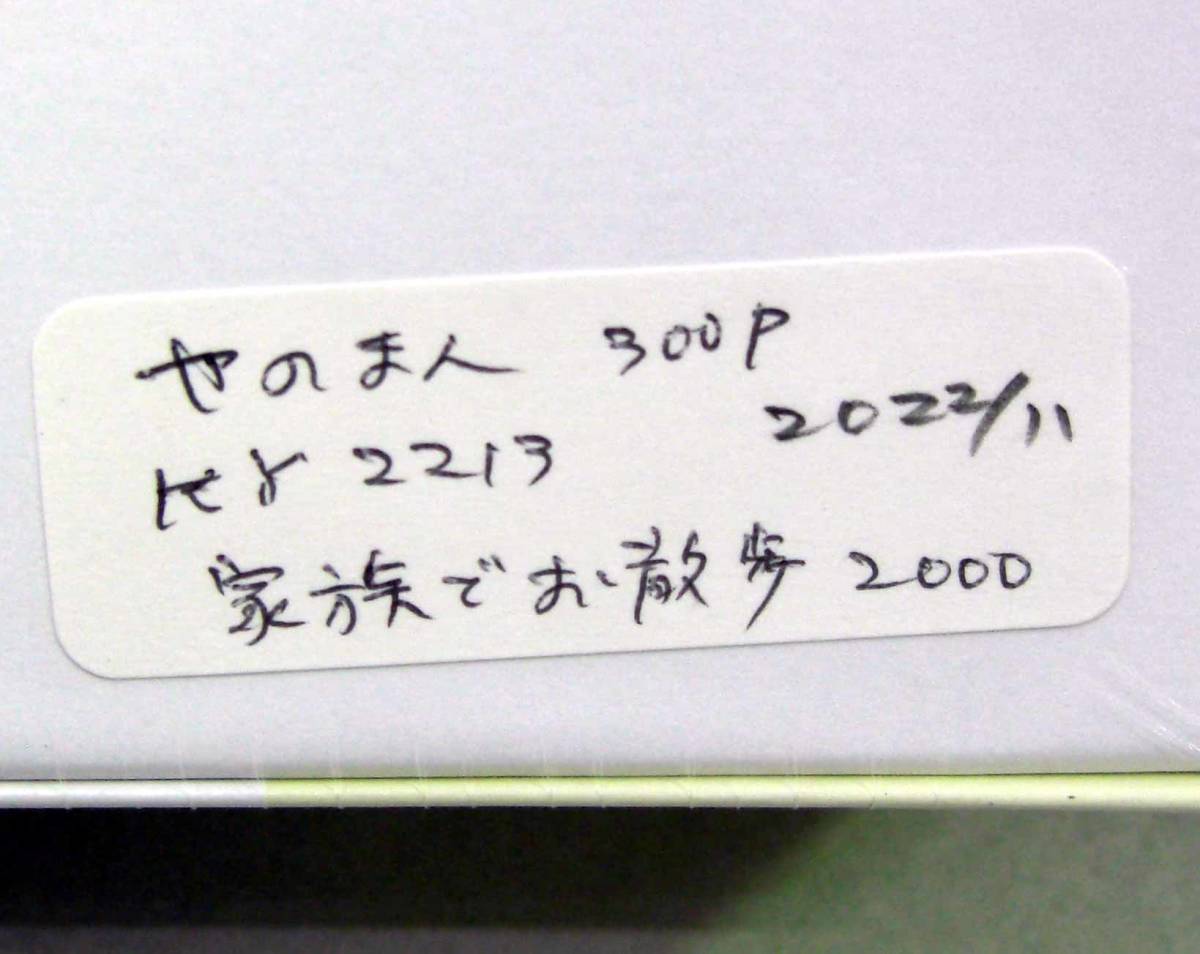 やのまん 300P
2022/11
2213
家族でお散歩 2000